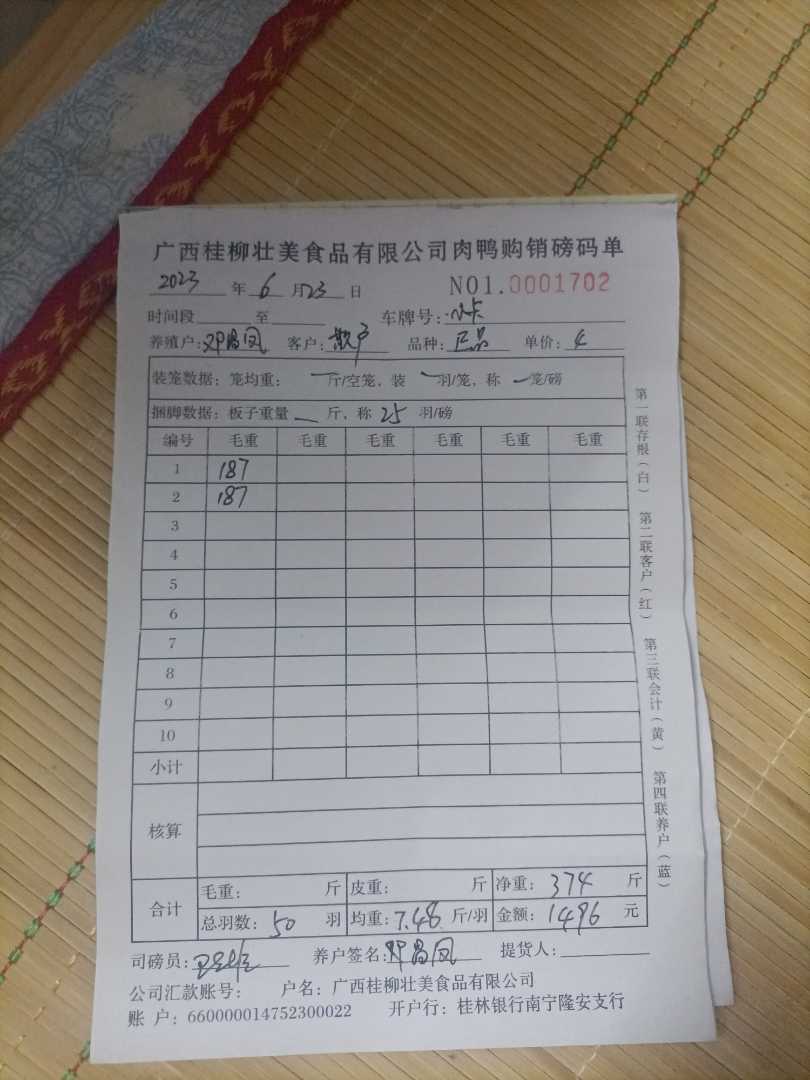 广西桂柳壮美食品有限公司肉鸭购销磅码单
2023 年 6 月 23 日 NO1.0001702
时间段 至 车牌号: 小卡
养殖户: 邓昌凤 客户: 散户 品种: 正品 单价: 4
装笼数据: 笼均重: 斤/空笼, 装 羽/笼, 称 笼/磅
捆脚数据: 板子重量 斤, 称 25 羽/磅
编号 毛重 毛重 毛重 毛重 毛重 毛重
1 187
2 187
3
4
5
6
7
8
9
10
小计
核算
合计 毛重: 斤 皮重: 斤 净重: 374 斤
总羽数: 50 羽 均重: 7.48 斤/羽 金额: 1496 元
司磅员: 养户签名: 邓昌凤 提货人:
公司汇款账号: 户名: 广西桂柳壮美食品有限公司
账 户: 660000014752300022 开户行: 桂林银行南宁隆安支行
第一联存根(白) 第二联客户(红) 第三联会计(黄) 第四联养户(蓝)